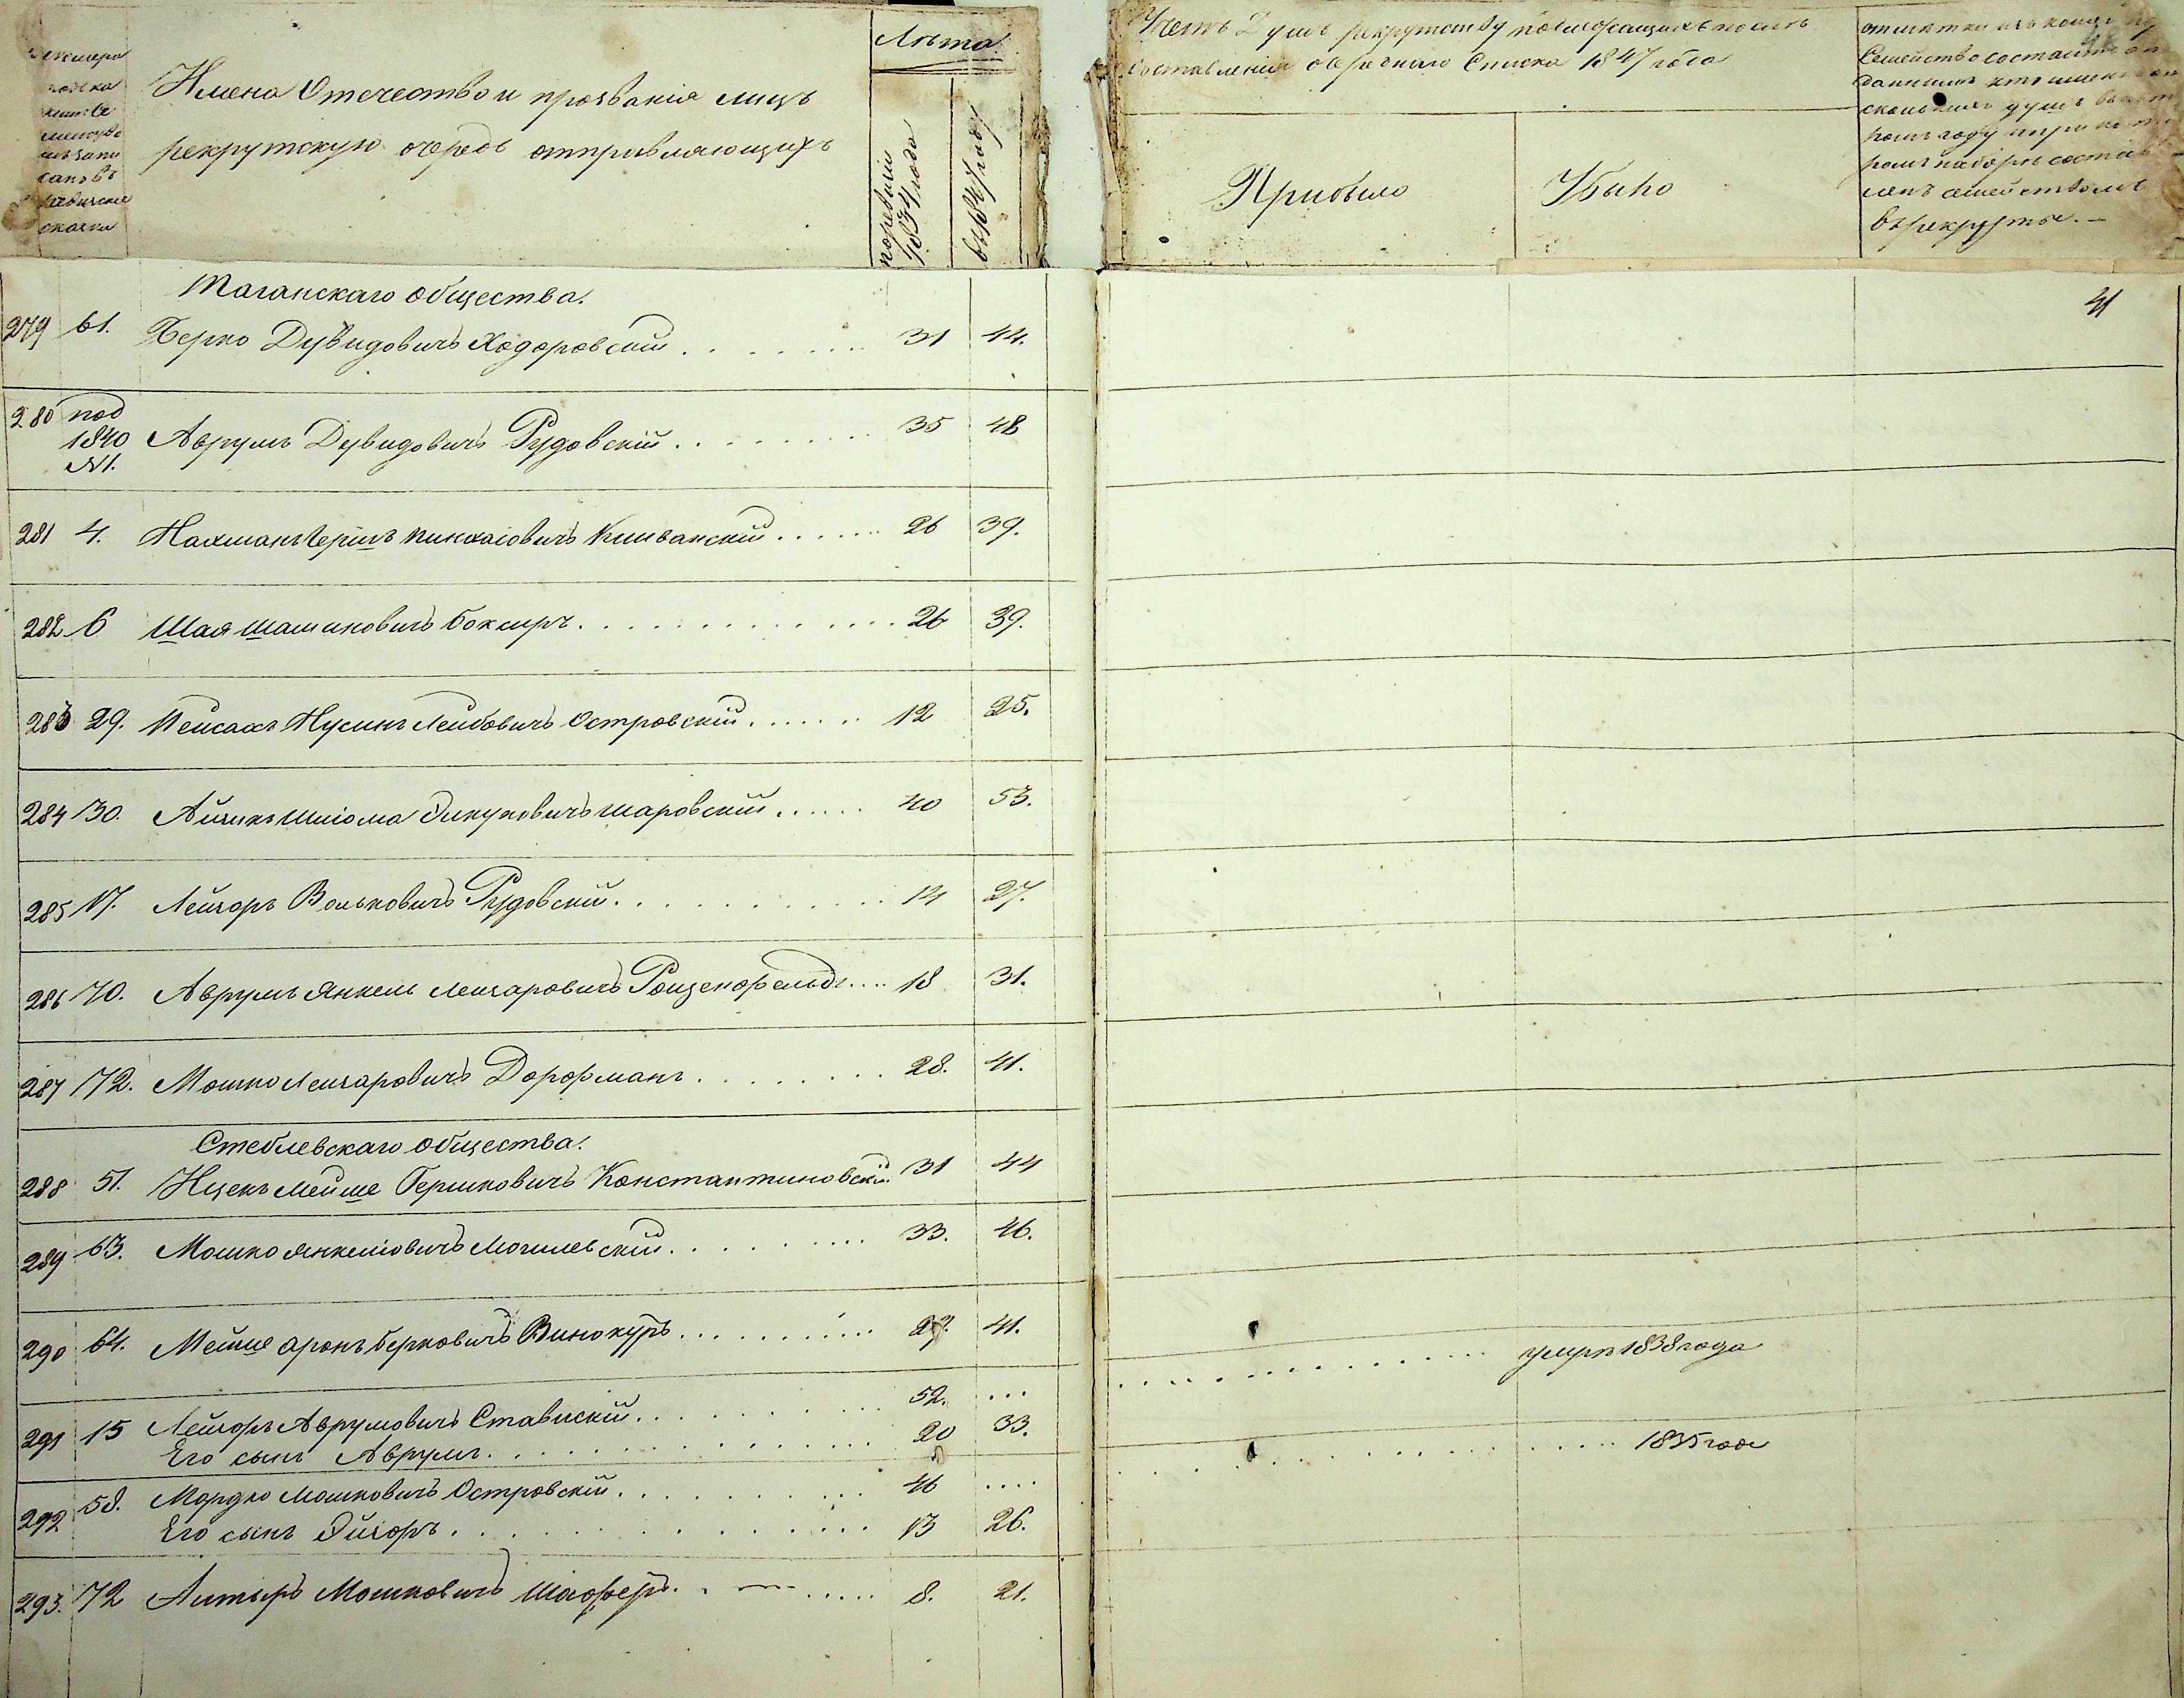 Имена Отечество и прозванія лицъ
рекрутскую очередь отправляющихъ
Лѣта
по ревизіи 1834 года
въ 1847 году
Счетъ душъ рекрутству подлежащихъ послѣ
составленія очереднаго Списка 1847 года
Прибыло
Убыло
Семейство состоитъ
въ рекруты.
41
Таганскаго общества.
279 61. Берко Дувидовичъ Ходоровскій 31 44.
280 под 1840 №1. Аврумъ Дувидовичъ Рудовскій 35 48
281 4. Нахманъ Гершъ Пинхасовичъ 26 39.
282 6 Шая Шашиковичъ Боксиръ 26 39.
283 29. Пейсахъ Нусинъ Лейбовичъ Островскій 12 25.
284 30. Айзикъ Шліома Шаровскій 40 53.
285 17. Лейзоръ Вольковичъ Рудовскій 14 27.
286 70. Аврумъ Янкель Лейзаровичъ Розенфельдъ 18 31.
287 72. Мошко Лейзаровичъ Дорфманъ 28. 41.
Стеблевскаго общества.
288 51. Ицекъ Мейше Гершковичъ Константиновскій 31 44
289 63. Мошко Янкеліовичъ Могилевскій 33. 46.
290 64. Мейше Аронъ Берковичъ Винокуръ 41.
умръ 1838 года
291 15 Лейзоръ Аврумовичъ Ставискій 52. ...
Его сынъ Аврумъ 20 33.
1835 годе
292 58. Мордко Мошковичъ Островскій 46 ....
Его сынъ Эйзоръ 13 26.
293. 72 Алтыръ Мошковичъ Шафѣръ 8. 21.